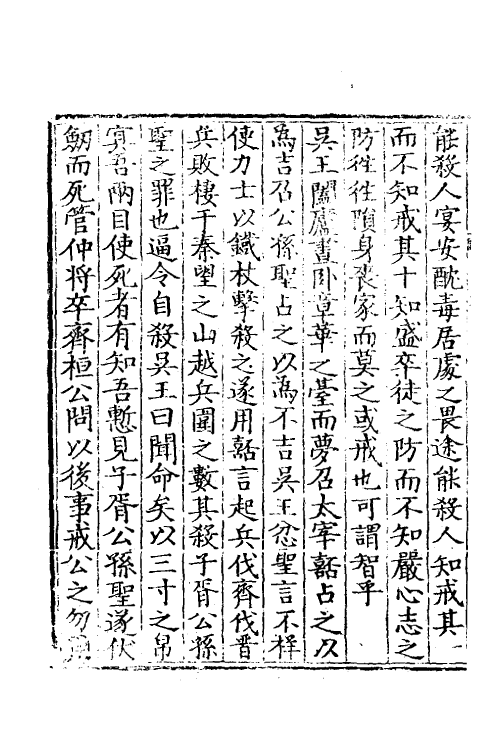 能殺人宴安酖毒居處之畏途能殺人知戒其一
而不知戒其十知盛卒徒之防而不知嚴心志之
防徃徃隕身喪家而莫之或戒也可謂智乎
吳王闔廬晝卧章華之臺而夢召太宰嚭占之以
為吉召公孫聖占之以為不吉吳王忿聖言不祥
使力士以鐵杖擊殺之遂用嚭言起兵伐齊伐晋
兵敗棲于秦望之山越兵圍之數其殺子胥公孫
聖之罪也逼令自殺吳王曰聞命矣以三寸之帛
㝠吾兩目使死者有知吾慙見子胥公孫聖遂伏
劒而死管仲将卒齊桓公問以後事戒公之勿